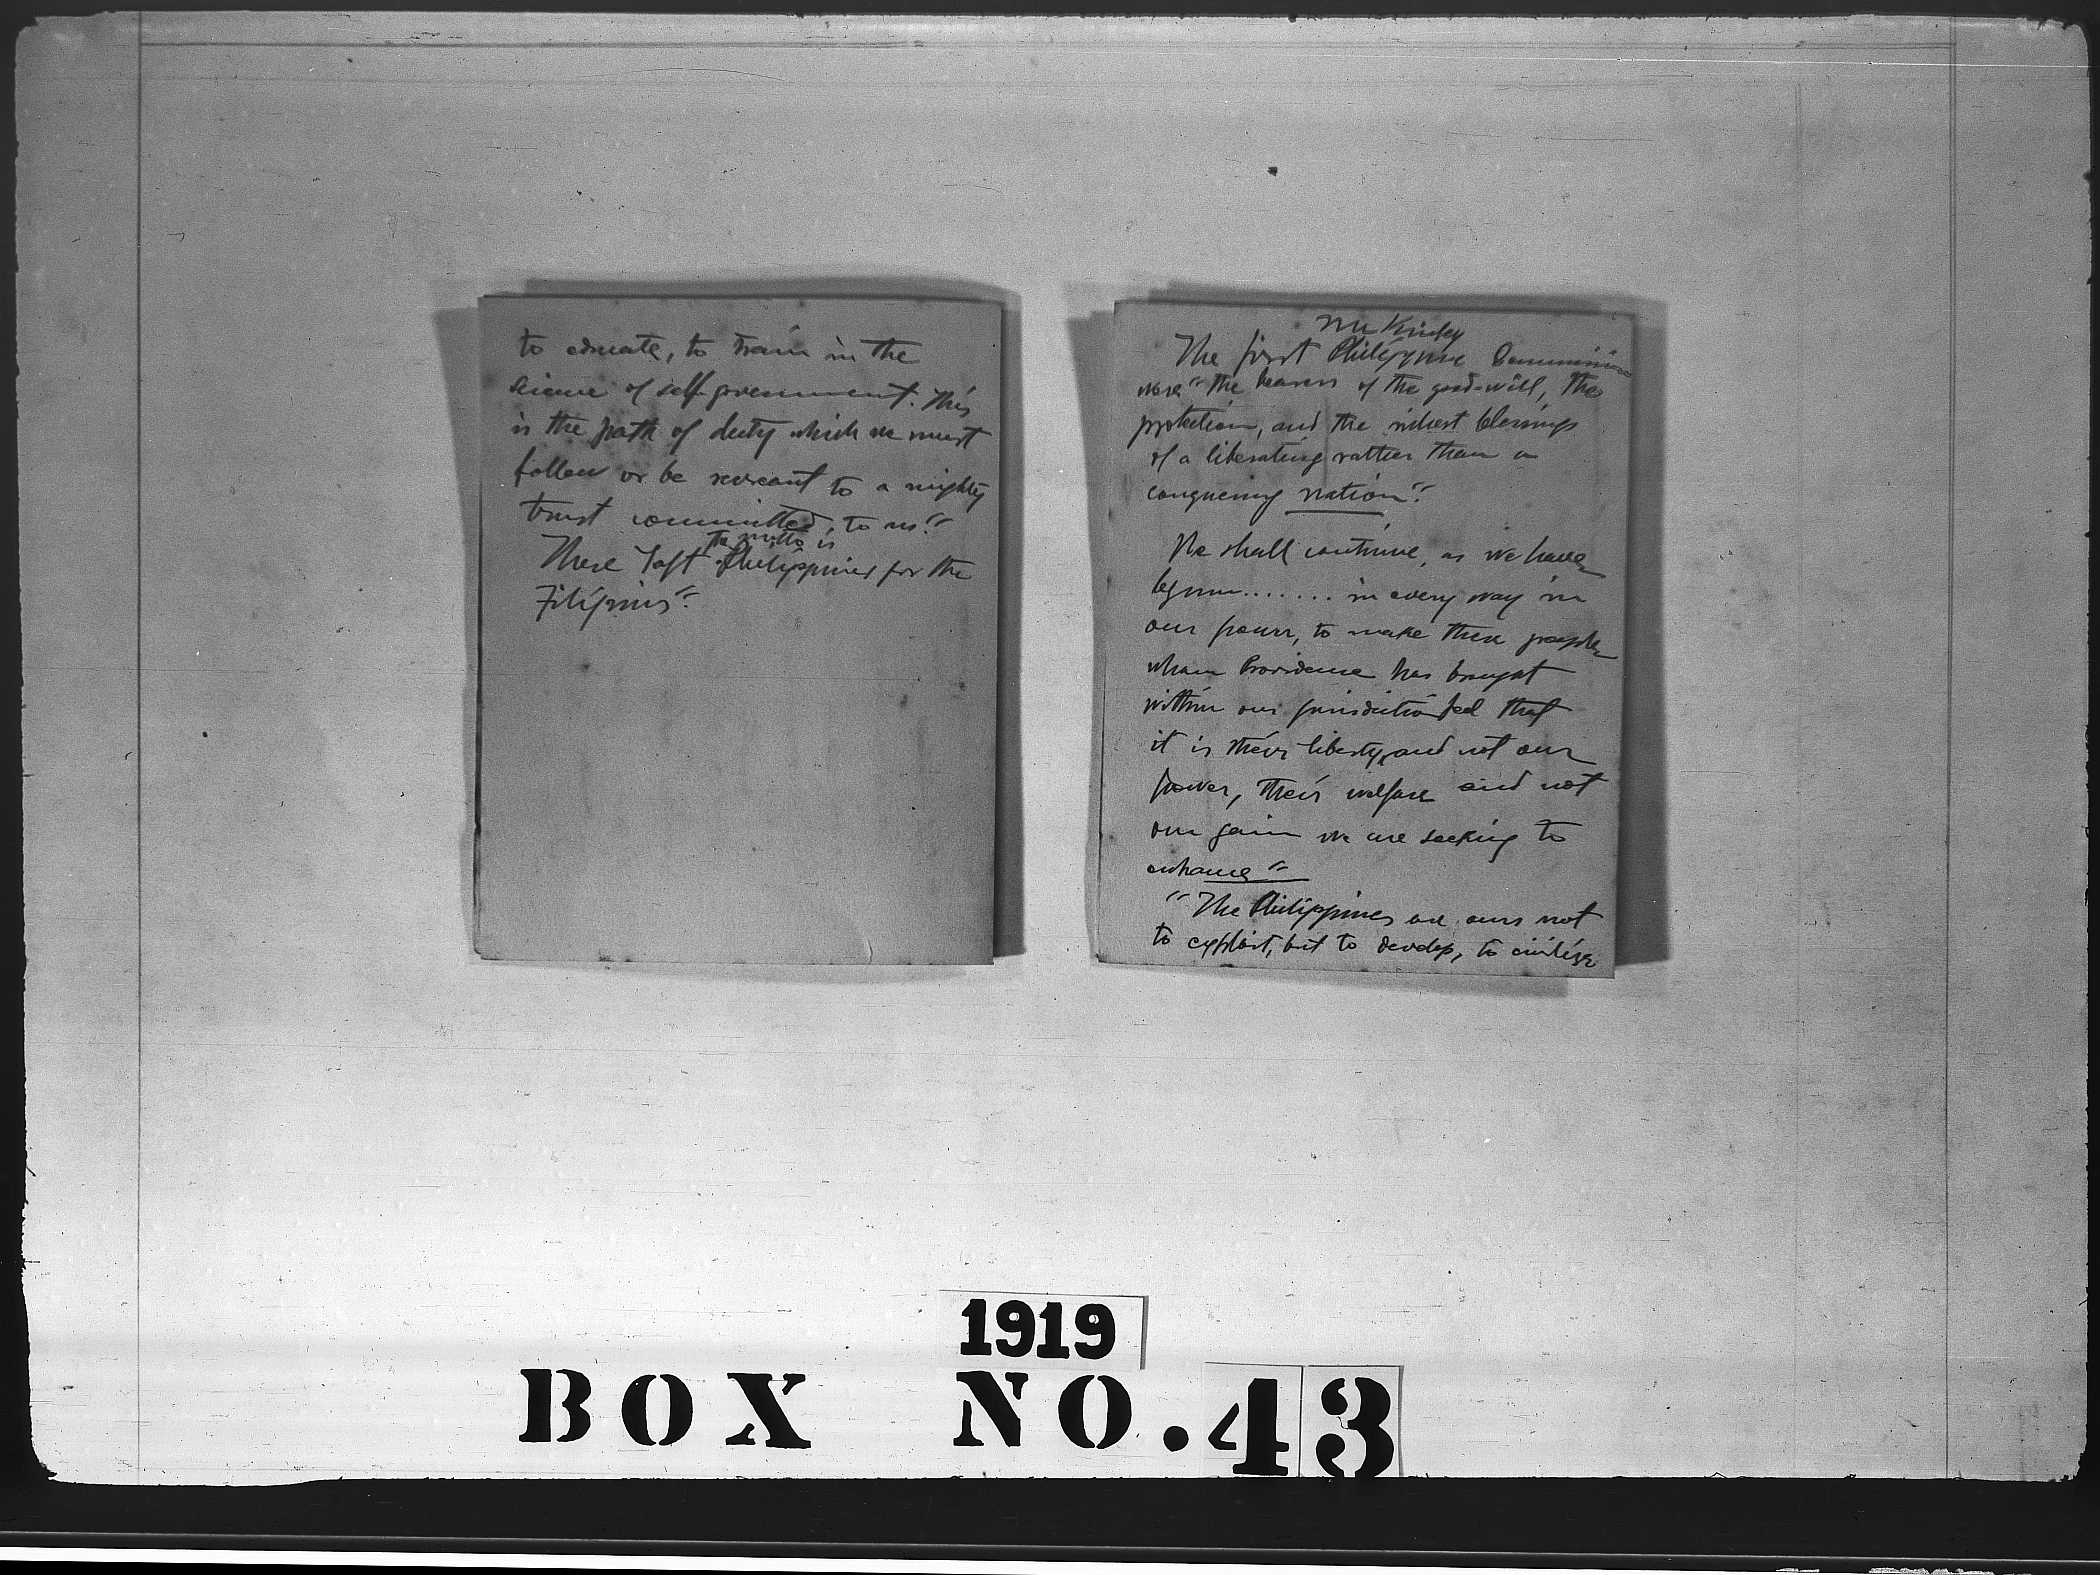 to educate, to train in the
science of self-government. This
is the path of duty which we must
follow or be recreant to a mighty
trust committed to us."
the motto is
These Taft "Philippines for the
Filipinos".
McKinley
The first Philippine Commission
were "the bearers of the good-will, the
protection, and the richest blessings
of a liberating rather than a
conquering nation".
We shall continue, as we have
begun....... in every way in
our power, to make these people
whom Providence has brought
within our jurisdiction feel that
it is their liberty and not our
power, their welfare and not
our gain we are seeking to
enhance"
"The Philippines are ours not
to exploit, but to develop, to civilize
1919
BOX NO. 43